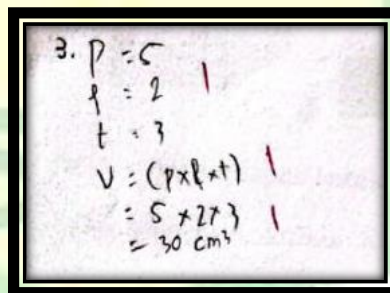 3. P = 5
l = 2
t = 3
V = (p x l x t)
= 5 x 2 x 3
= 30 cm³